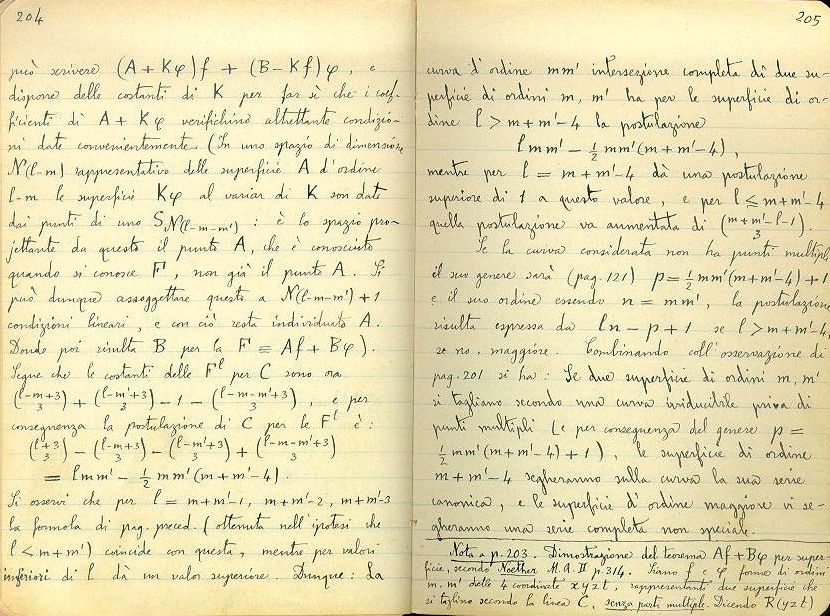 204
può scrivere (A + Kφ) f + (B − Kf) φ , e
disporre delle costanti di K per far sì che i coef-
ficienti di A + Kφ verifichino altrettante condizio-
ni date convenientemente. (In uno spazio di dimensione
N(l-m) rappresentativo delle superficie A d'ordine
l-m le superficie Kφ al variar di K son date
dai punti di uno S_N(l-m-m') : è lo spazio pro-
jettante da questo il punto A, che è conosciuto
quando si conosce F, non già il punto A. Si
può dunque assoggettare questo a N(l-m-m') + 1
condizioni lineari, e con ciò resta individuato A.
Donde poi risulta B per la F ≡ Af + Bφ).
Segue che le costanti delle F^l per C sono ora
(l-m+3 3) + (l-m'+3 3) − 1 − (l-m-m'+3 3) , e per
conseguenza la postulazione di C per le F^l è :
(l+3 3) − (l-m+3 3) − (l-m'+3 3) + (l-m-m'+3 3)
= l m m' − ½ m m' (m + m' − 4) .
Si osservi che per l = m+m'-1, m+m'-2, m+m'-3
la formola di pag. preced. (ottenuta nell'ipotesi che
l < m+m') coincide con questa, mentre per valori
inferiori di l dà un valor superiore. Dunque : La
205
curva d'ordine mm' intersezione completa di due su-
perficie di ordini m, m' ha per le superficie di or-
dine l > m+m'-4 la postulazione
l m m' − ½ m m' (m + m' − 4) ,
mentre per l = m+m'-4 dà una postulazione
superiore di 1 a questo valore, e per l ≤ m+m'-4
quella postulazione va aumentata di (m+m'-l-1 3).
Se la curva considerata non ha punti multipli
il suo genere sarà (pag. 121) p = ½ mm'(m+m'-4) + 1
e il suo ordine essendo n = mm', la postulazione
risulta espressa da ln − p + 1 se l > m+m'-4,
se no, maggiore. Combinando coll'osservazione di
pag. 201 si ha : Se due superficie di ordini m, m'
si tagliano secondo una curva irriducibile priva di
punti multipli (e per conseguenza del genere p =
½ mm'(m+m'-4) + 1), le superficie di ordine
m+m'-4 segheranno sulla curva la sua serie
canonica, e le superficie d'ordine maggiore vi se-
gheranno una serie completa non speciale.
Nota a p. 203. Dimostrazione del teorema Af+Bφ per super-
ficie, secondo Noether M.A. II p. 314. Siano f e φ forme di ordini
m, m' delle 4 coordinate x y z t, rappresentanti due superficie che
si taglino secondo la linea C, senza parti multiple. Dicendo R(yzt)